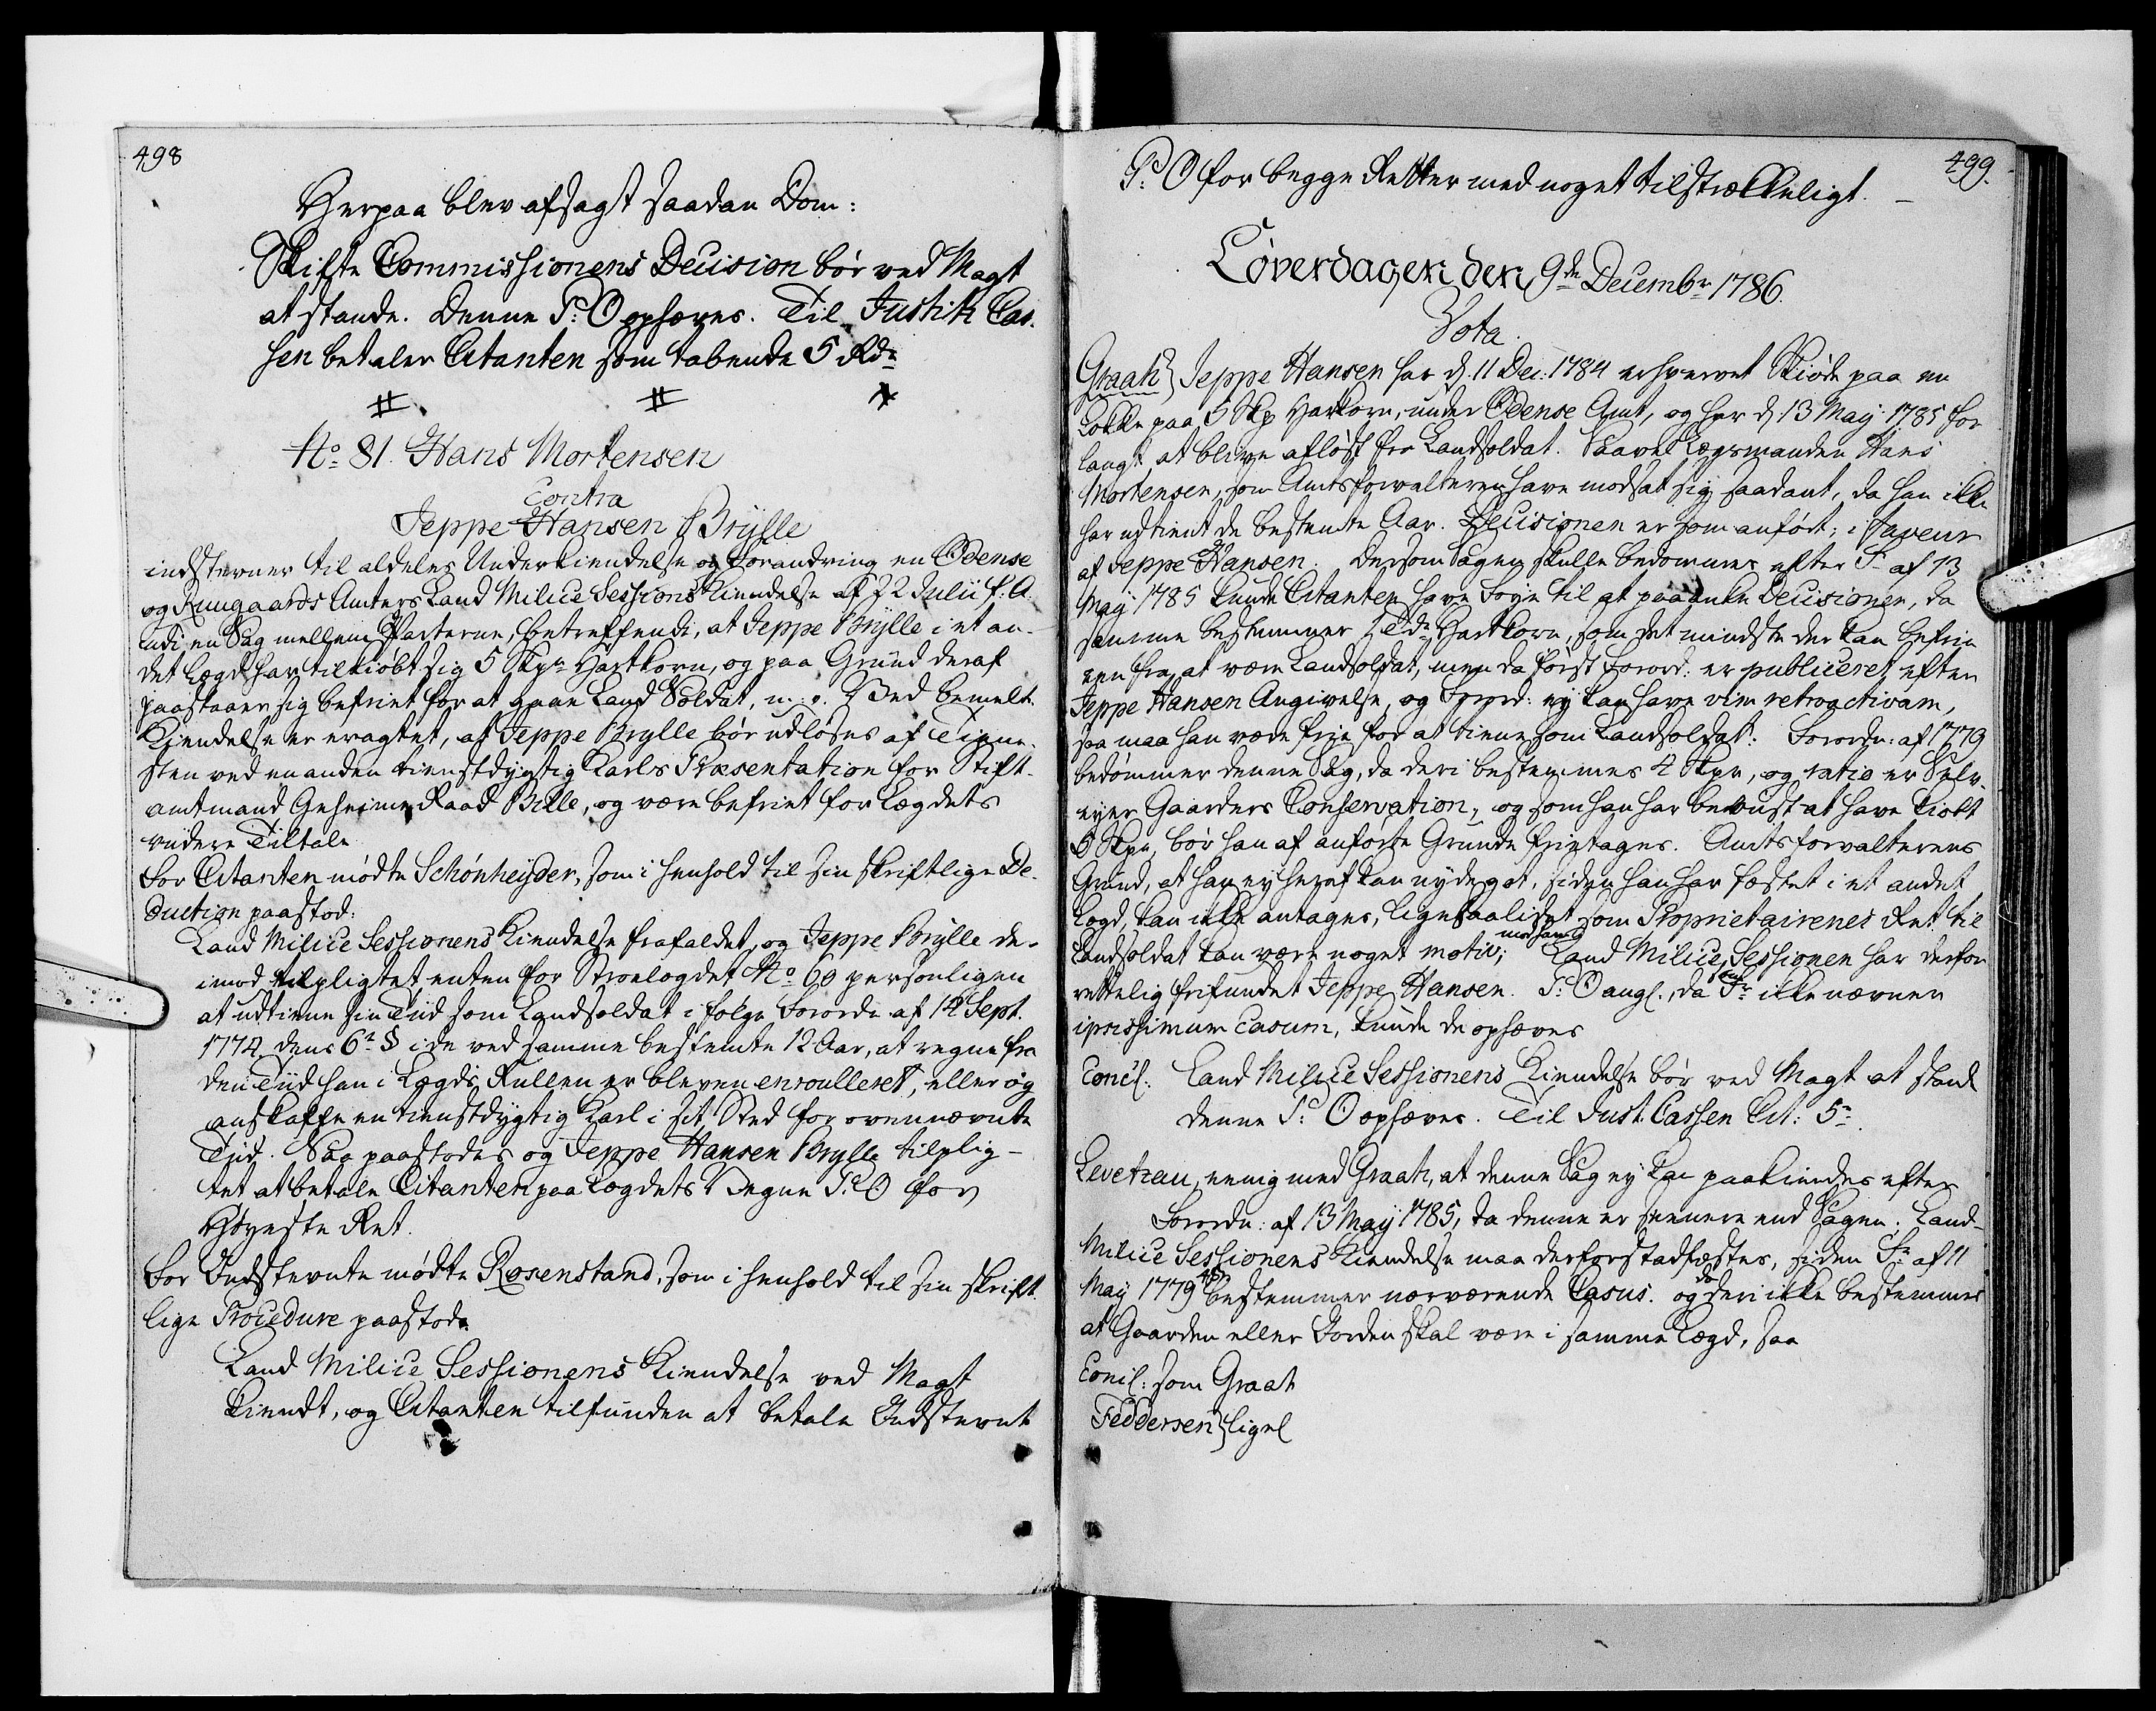 498
Herpaa blev afsagt saadan Dom:
Skifte Commissionens Decision bør ved Magt
at stande. Denne P: O ophæves. Til Justits Cas-
sen betaler Citanten som tabende 5 Rdr
No 81. Hans Mortensen
Contra
Jeppe Hansen Brylle
indstevner til aldeles Underkiendelse og Forandring en Odense
og Ruugaards Amters Land Milice Sessions Kiendelse af 22 Julii f: A:
udi en Sag mellem Parterne, betreffende, at Jeppe Brylle i et an-
det Lægd har tilkiøbt sig 5 Skpr Hartkorn, og paa Grund deraf
paastaaer sig befriet for at gaae Land Soldat, m: v: Ved bemelte
Kiendelse er eragtet, at Jeppe Brylle bør udløses af Tiene-
sten ved en anden tienstdygtig Karls Præsentation for Stift-
amtmand Geheime Raad Bille, og være befriet for Lægdets
videre Tiltale
For Citanten mødte Schønheyder, som i henhold til sin skriftlige De-
duction paastod:
Land Milice Sessionens Kiendelse frafaldet, og Jeppe Brylle de-
imod tilpligtet enten for Stroelægdet No 60 personligen
at udtiene sin Tiid som Landsoldat i følge Forordn. af 14 Sept.
1774, dens 6te § i de ved samme bestemte 12 Aar, at regne fra
den Tiid han i Lægds Rullen er bleven enroulleret, eller og
anskaffe en tienstdygtig Karl i sit Sted for ovennævnte
Tiid. Saa paastodes og Jeppe Hansen Brylle tilplig-
tet at betale Citanten paa Lægdets Vegne P: O for
Høyeste Ret.
For Indstevnte mødte Rosenstand, som i henhold til sin skrift-
lige Procedure paastod.
Land Milice Sessionens Kiendelse ved Magt
kiendt, og Citanten tilfunden at betale Indstevnte
499.
P: O for begge Retter med noget tilstrækkeligt. —
Løverdagen den 9de Decembr 1786.
Vota.
Graah} Jeppe Hansen har d. 11 Dec: 1784 erhvervet Skiøde paa en
Lokke paa 5 Skp Hartkorn, under Odense Amt, og har d. 13 May 1785 for-
langt at blive afløst fra Landsoldat. Saavel Lægsmanden Hans
Mortensen, som Amtsforvalteren have modsat sig saadant, da han ikke
har udtient de bestemte Aar. Decisionen er som anført; i Faveur
af Jeppe Hansen. Dersom Sagen skulle bedømmes efter Fr af 13
May 1785 kunde Citanten have Føye til at paaanke Decisionen, da
samme bestemmer Tdr Hartkorn, som det mindste der kan befrie
een fra at være Landsoldat, men da først Forord: er publiceret efter
Jeppe Hansen Angivelse, og Forord: ey kan have vim retroactivam,
saa maa han være frie for at tiene som Landsoldat. Forordn: af 1779
bedømmer denne Sag, da deri bestemmes 4 Skpr, og ratio er Selv-
eyer Gaarders Conservation, og som han har beviist at have kiøbt
5 Skpr, bør han af anførte Grunde frietages. Amtsforvalterens
Grund, at han ey heraf kan nyde got, siden han har fæstet i et andet
Lægd, kan ikke antages, ligesaalidet som Proprietairenes Ret til
Landsoldat kan være noget motiv; mod ham. Land Milice Sessionen har derfor
rettelig frifundet Jeppe Hansen. P: O angl., da Fr ikke nævner
ipsissimum Casum, kunde de ophæves
Concl. Land Milice Sessionens Kiendelse bør ved Magt at stande
Denne P: O ophæves. Til Just: Cassen Cit: 5 r
Levetzau, eenig med Graah, at denne Sag ey kan paakiendes efter
Forordn: af 13 May 1785, da denne er senere end Sagen. Land-
Milice Sessionens Kiendelse maa derfor stadfæstes, siden Fr af 11
May 1779 bestemmer nærværende Casus. og da deri ikke bestemmes
at Gaarden eller Jorden skal være i samme Lægd, saa
Concl: som Graah
Feddersen} ligel